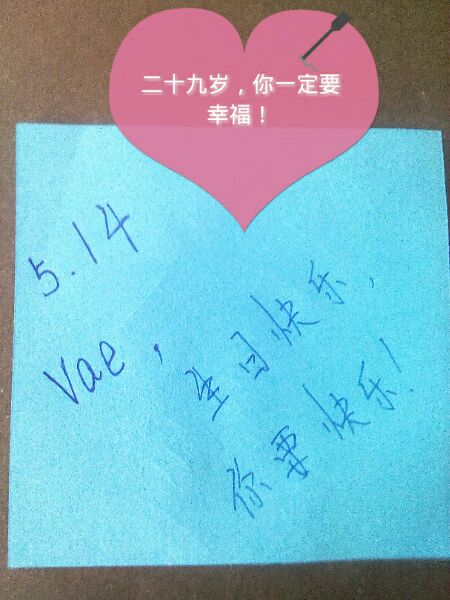 二十九岁，你一定要
幸福！
5.14
Vae，生日快乐，
你要快乐！